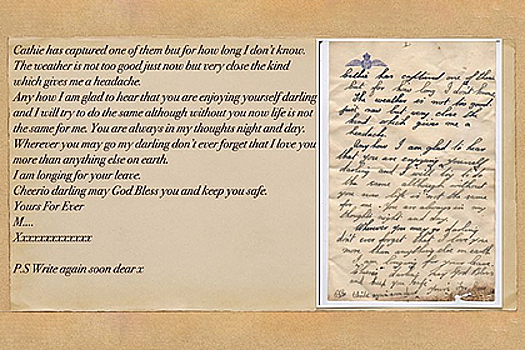 Cathie has captured one of them but for how long I don't know.
The weather is not too good just now but very close the kind
which gives me a headache.
Any how I am glad to hear that you are enjoying yourself darling
and I will try to do the same although without you now life is not
the same for me. You are always in my thoughts night and day.
Wherever you may go my darling don't ever forget that I love you
more than anything else on earth.
I am longing for your leave.
Cheerio darling may God Bless you and keep you safe.
Yours For Ever
M....
Xxxxxxxxxxxxx
P.S Write again soon dear x
Cathie has captured one of them
but for how long I don't know.
The weather is not too good
just now but very close the
kind which gives me a
headache.
Any how I am glad to hear
that you are enjoying yourself
darling and I will try to do
the same although without
you now life is not the same
for me. You are always in my
thoughts night and day.
Wherever you may go darling
don't ever forget that I love you
more than anything else on earth
I am longing for your leave
Cheerio darling may God Bless
you and keep you safe
Yours